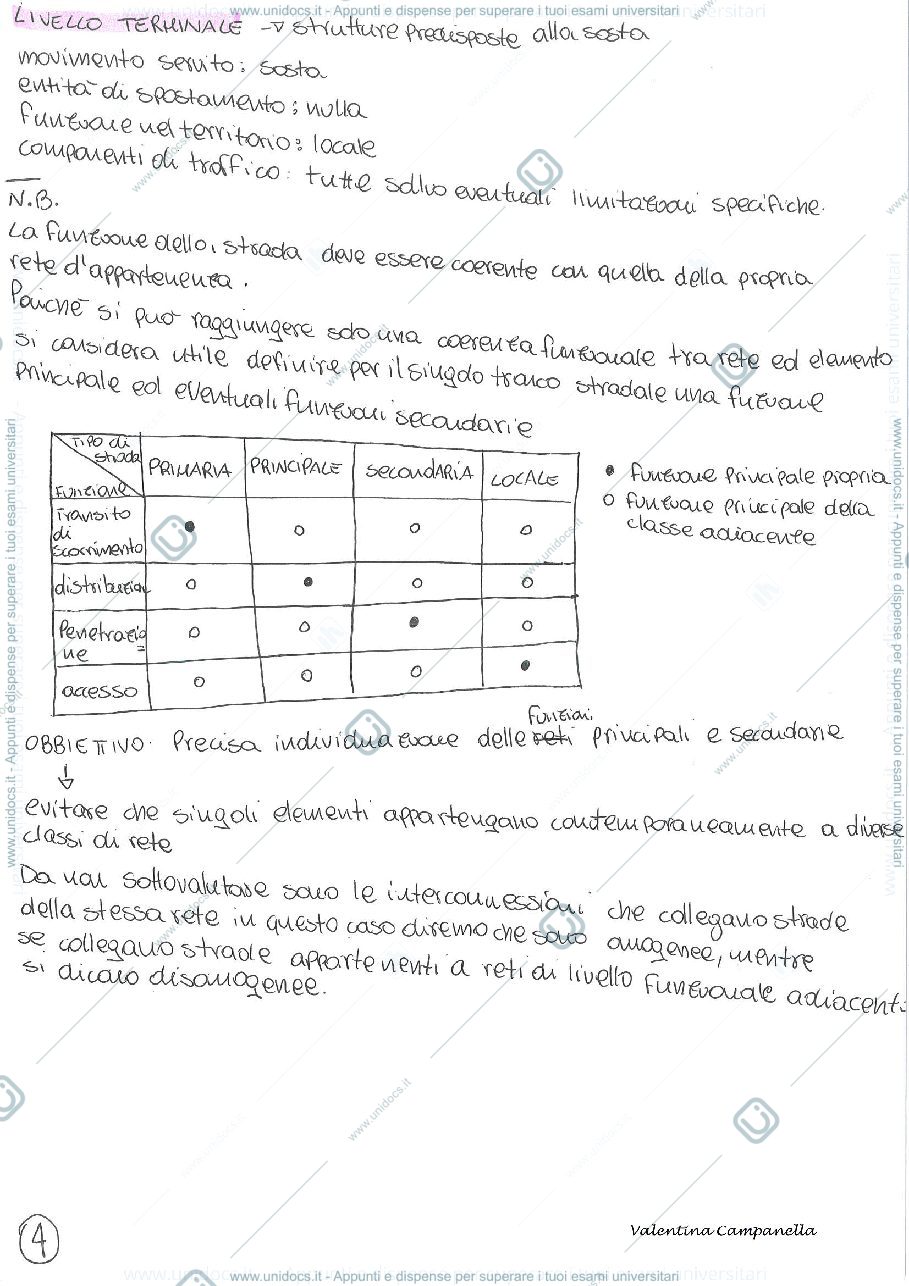 www.unidocs.it - Appunti e dispense per superare i tuoi esami universitari
LIVELLO TERMINALE → strutture predisposte alla sosta
movimento servito: sosta
entità di spostamento: nulla
funzione nel territorio: locale
componenti di traffico: tutte salvo eventuali limitazioni specifiche.
N.B.
La funzione della strada deve essere coerente con quella della propria
rete d'appartenenza.
Poichè si può raggiungere solo una coerenza funzionale tra rete ed elemento
si considera utile definire per il singolo tronco stradale una funzione
principale ed eventuali funzioni secondarie
Tipo di strada
Funzione
PRIMARIA PRINCIPALE SECONDARIA LOCALE
Transito di scorrimento ● ○ ○ ○
distribuzion ○ ● ○ ○
Penetrazio=ne ○ ○ ● ○
accesso ○ ○ ○ ●
● funzione principale propria
○ funzione principale della
classe adiacente
funzioni
OBBIETTIVO: Precisa individuazione delle reti principali e secondarie
↓
evitare che singoli elementi appartengano contemporaneamente a diverse
classi di rete
Da non sottovalutare sono le interconnessioni che collegano strade
della stessa rete in questo caso diremo che sono omogenee, mentre
se collegano strade appartenenti a reti di livello funzionale adiacenti
si dicono disomogenee.
4
Valentina Campanella
www.unidocs.it - Appunti e dispense per superare i tuoi esami universitari
www.unidocs.it - Appunti e dispense per superare i tuoi esami universitari
www.unidocs.it - Appunti e dispense per superare i tuoi esami universitari